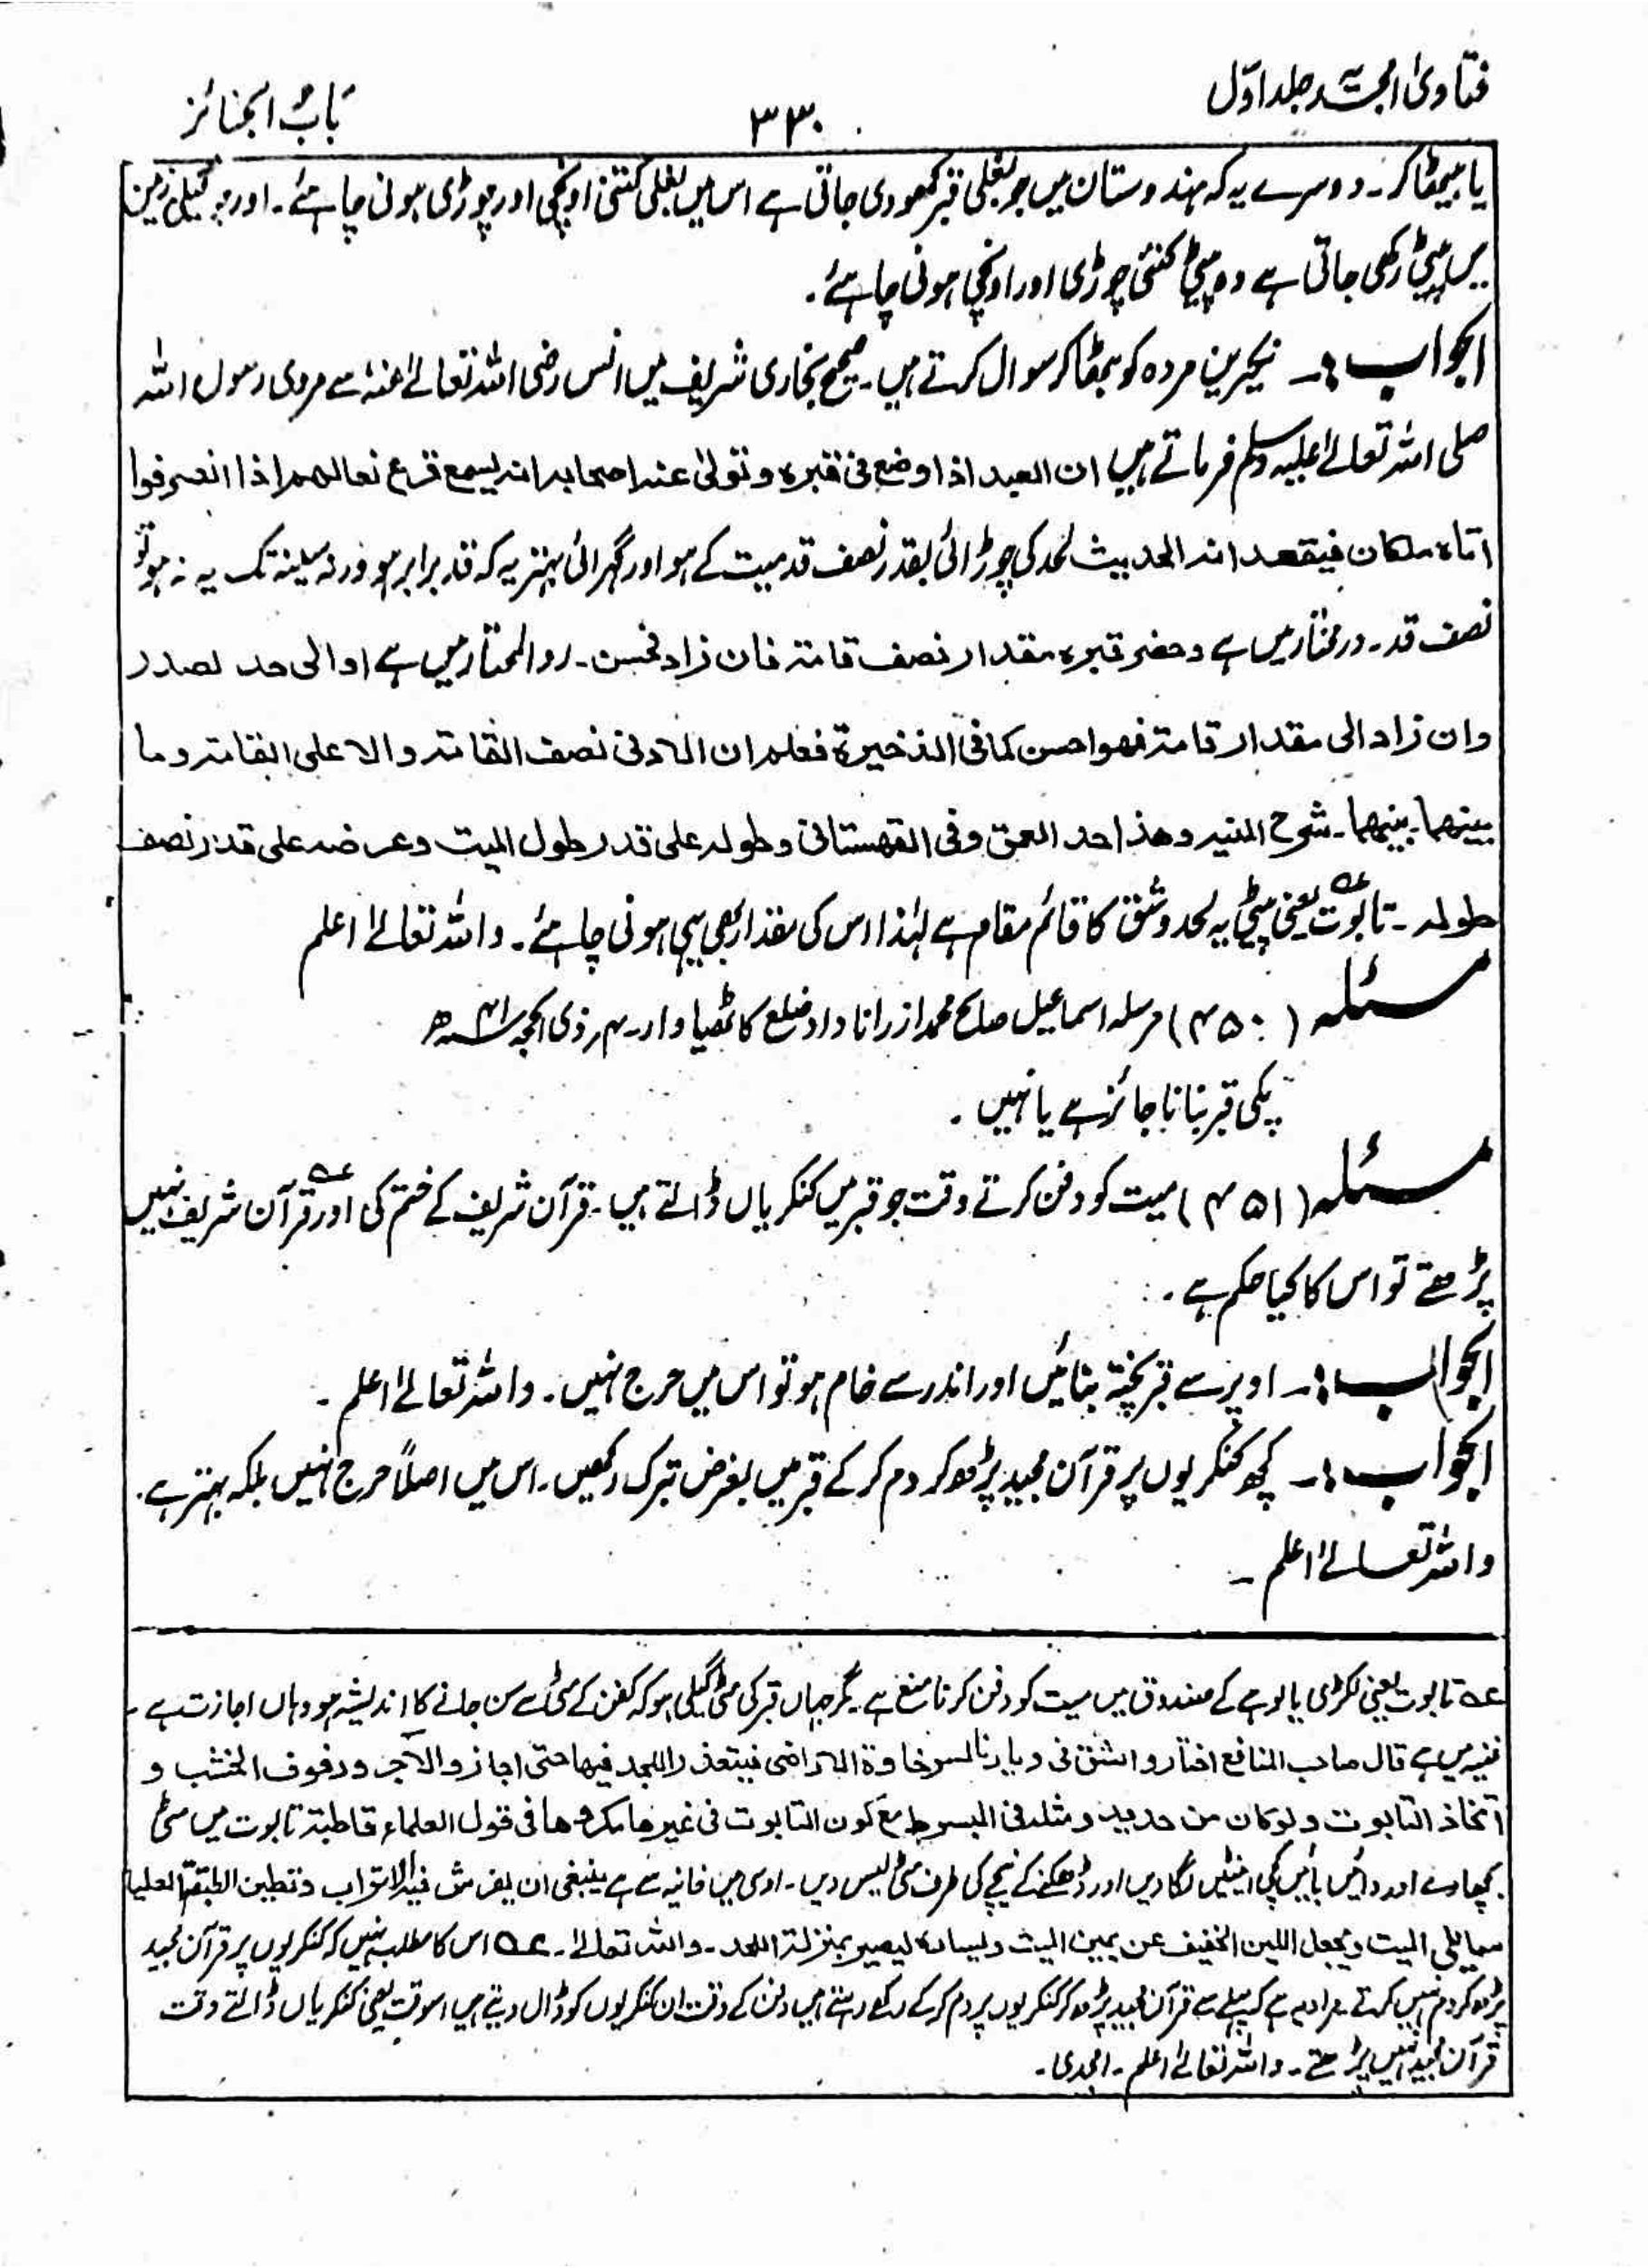 فتاویٰ امجدیہ جلد اوّل
۳۳۰
بَابُ الجنائز
یا بیٹھا کر۔ دوسرے یہ کہ ہندوستان میں جو بغلی قبر کھودی جاتی ہے اس میں بغلی کتنی اونچی اور چوڑی ہونی چاہئے۔ اور جو گیلی زمین
میں پیٹی رکھی جاتی ہے وہ پیٹی کتنی چوڑی اور اونچی ہونی چاہئے۔
الجواب :۔ نکیرین مردہ کو بٹھا کر سوال کرتے ہیں۔ صحیح بخاری شریف میں انس رضی اللہ تعالےٰ عنہ سے مروی رسول اللہ
صلی اللہ تعالےٰ علیہ وسلم فرماتے ہیں ان العبد اذا وضع فی قبرہ وتولیٰ عنہ اصحابہ انہ لیسمع قرع نعالھم اذا انصرفوا
اتاہ ملکان فیقعد انہ الحدیث لحد کی چوڑائی بقدر نصف قد میت کے ہو اور گہرائی بہتر یہ کہ قد برابر ہو ورنہ سینہ تک یہ نہ ہو تو
نصف قد۔ در مختار میں ہے وحفر قبرہ مقدار نصف قامۃ فان زاد فحسن۔ ردالمحتار میں ہے او الی حد لصدر
وان زاد الی مقدار قامۃ فھو احسن کما فی الذخیرۃ فعلم ان الادنیٰ نصف القامۃ والاعلی القامۃ وما
بینھما۔ بینھما۔ شرح المنیہ وھذا حد العمق وفی القھستانی وطولہ علی قدر طول المیت وعرضہ علی قدر نصف
طولہ۔ تابوت عہ یعنی پیٹی یہ لحد وشق کا قائم مقام ہے لہٰذا اس کی مقدار بھی یہی ہونی چاہئے۔ واللہ تعالےٰ اعلم
مسئلہ (۴۵۰) مرسلہ اسماعیل صالح محمد از رانا واو ضلع کاٹھیاوار۔ ۴؍ ذی الحجہ ۴۱ھ
پکی قبر بنانا جائز ہے یا نہیں۔
مسئلہ (۴۵۱) میت کو دفن کرتے وقت جو قبر میں کنکریاں ڈالتے ہیں۔ قرآن شریف کے ختم کی اور عہ قرآن شریف نہیں
پڑھتے تو اس کا کیا حکم ہے۔
الجواب :۔ اوپر سے قبر پختہ بنائیں اور اندر سے خام ہو تو اس میں حرج نہیں۔ واللہ تعالےٰ اعلم۔
الجواب :۔ کچھ کنکریوں پر قرآن مجید پڑھ کر دم کر کے قبر میں بغرض تبرک رکھیں۔ اس میں اصلاً حرج نہیں بلکہ بہتر ہے۔
واللہ تعالےٰ اعلم ۔
عہ تابوت یعنی لکڑی یا لوہے کے صندوق میں میت کو دفن کرنا منع ہے۔ مگر جہاں قبر کی مٹی گیلی ہو کہ کفن کے مٹی سے سن جانے کا اندیشہ ہو وہاں اجازت ہے۔
غنیہ میں ہے قال صاحب المنافع اختاروا الشق فی دیارنا لرخاوۃ الاراضی فیتعذر اللحد فیھا حتی اجازوا الآجر ورفوف الخشب و
اتخاذ التابوت ولو کان من حدید ومثلہ فی المبسوط مع کون التابوت فی غیرھا مکروھا فی قول العلماء قاطبۃ تابوت میں مٹی
بچھا دے اور دائیں بائیں کچی اینٹیں لگا دیں اور ڈھکنے کے نیچے کی طرف مٹی لیس دیں۔ اوسی میں خانیہ سے ہے ینبغی ان یفرش فیہ التراب وتطین الطبقۃ العلیا
مما یلی المیت ویجعل اللبن الخفیف عن یمین المیت ویسارہ لیصیر بمنزلۃ اللحد۔ واللہ تعالےٰ۔ عہ اس کا مطلب یہ نہیں کہ کنکریوں پر قرآن مجید
پڑھ کر دم نہیں کرتے۔ مراد یہ ہے کہ پہلے سے قرآن مجید پڑھ کر کنکریوں پر دم کر کے رکھے رہتے ہیں دفن کے وقت ان کنکریوں کو ڈال دیتے ہیں اسوقت یعنی کنکریاں ڈالتے وقت
قرآن مجید نہیں پڑھتے۔ واللہ تعالےٰ اعلم۔ امجدی۔